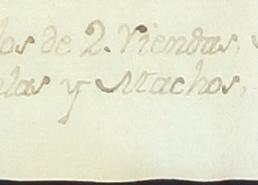 los de 2. Riendas,
las y Machos,